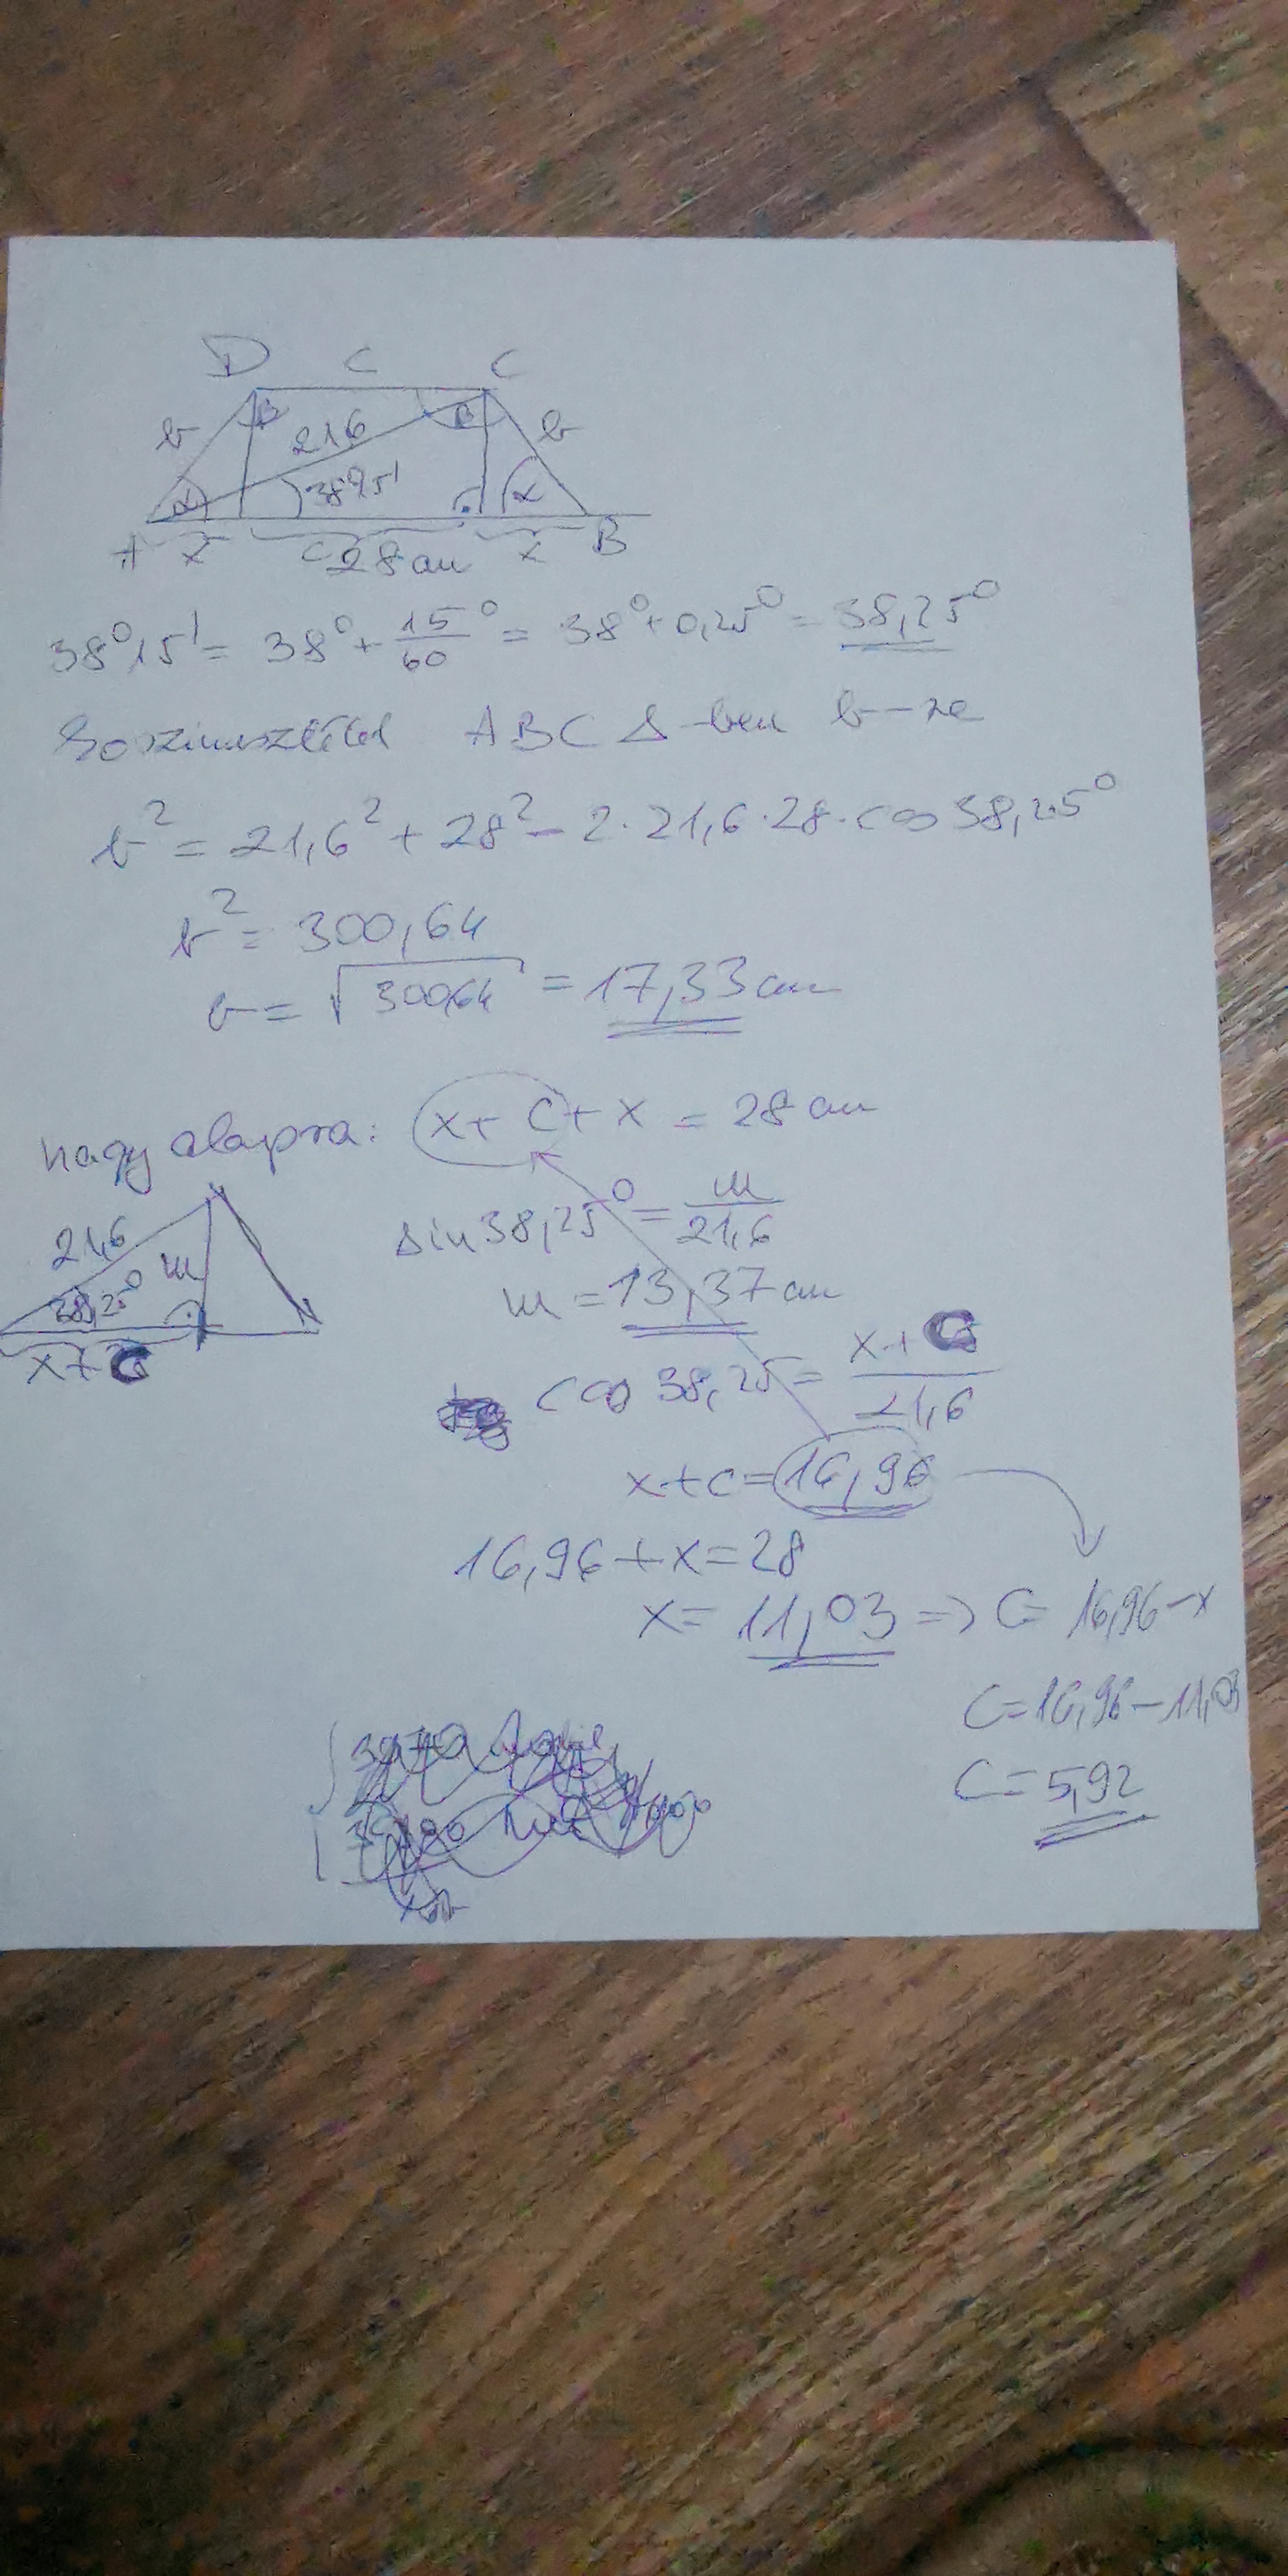 D c C
b β 21,6 β b
α 38°15' α
A x c 28 cm x B
38°15' = 38° + 15/60° = 38° + 0,25° = 38,25°
Koszinusztétel ABC Δ-ben b-re
b² = 21,6² + 28² - 2·21,6·28·cos 38,25°
b² = 300,64
b = √300,64 = 17,33 cm
nagy alapra: x + c + x = 28 cm
21,6 m
38,25°
x + c
sin 38,25° = m/21,6
m = 13,37 cm
cos 38,25 = x + c/21,6
x + c = 16,96
16,96 + x = 28
x = 11,03 => C = 16,96 - x
C = 16,96 - 11,03
C = 5,92